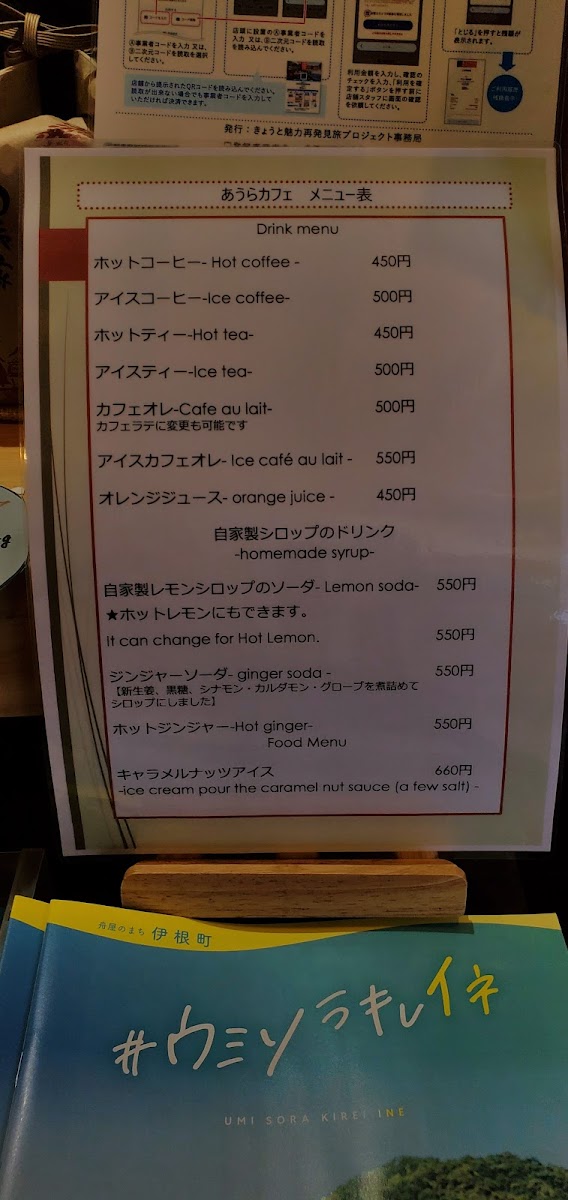 Ⓐ事業者コードを入力 又は、
Ⓑ二次元コードを読取を選択
してください。
店舗に設置のⒶ事業者コードを
入力 又は、Ⓑ二次元コードを読取
り読み込んでください。
店舗から提示されたQRコードを読み込んでください。
読取が出来ない場合でも事業者コードを入力して
いただければ決済できます。
利用金額を入力し、確認の
チェックを入力、「利用を確
定する」ボタンを押す前に
店舗スタッフに画面の確認
を依頼してください。
「とじる」を押すと残額が
表示されます。
発行：きょうと魅力再発見旅プロジェクト事務局
あうらカフェ　メニュー表
Drink menu
ホットコーヒー- Hot coffee - 450円
アイスコーヒー-Ice coffee- 500円
ホットティー-Hot tea- 450円
アイスティー-Ice tea- 500円
カフェオレ-Cafe au lait- 500円
カフェラテに変更も可能です
アイスカフェオレ- Ice café au lait - 550円
オレンジジュース- orange juice - 450円
自家製シロップのドリンク
-homemade syrup-
自家製レモンシロップのソーダ- Lemon soda- 550円
★ホットレモンにもできます。
It can change for Hot Lemon. 550円
ジンジャーソーダ- ginger soda - 550円
【新生姜、黒糖、シナモン・カルダモン・グローブを煮詰めて
シロップにしました】
ホットジンジャー-Hot ginger- 550円
Food Menu
キャラメルナッツアイス 660円
-ice cream pour the caramel nut sauce (a few salt) -
舟屋のまち 伊根町
#ウミソラキレイネ
UMI SORA KIREI INE